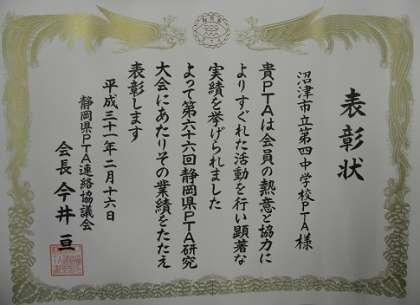 表彰状
沼津市立第四中学校PTA 様
貴PTAは会員の熱意と協力に
よりすぐれた活動を行い顕著な
実績を挙げられました
よって第六十六回静岡県PTA研究
大会にあたりその業績をたたえ
表彰します
平成三十一年二月十六日
静岡県PTA連絡協議会
会長 今井 亘